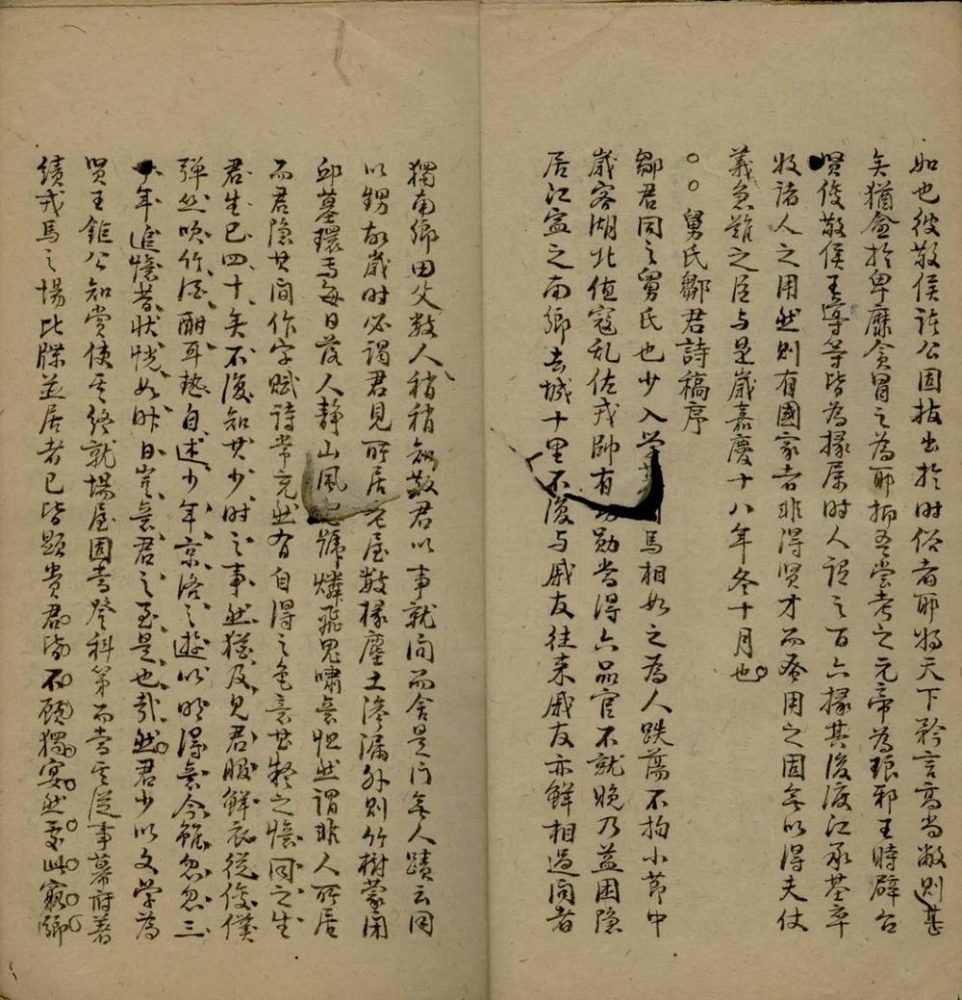 如也彼敬侯諸公固拔出於时俗者耶將天下矜言高尚敝則甚
矣猶愈於卑靡貪冒之為耶抑吾嘗考之元帝為琅邪王時辟召
賢俊敬侯王導等皆為掾屬时人謂之百六掾其後渡江承基卒
收諸人之用然則有國家者非得贤才而蚤用之固無以得夫仗
義急難之臣与是歲嘉慶十八年冬十月也
○○舅氏鄒君詩稿序
鄒君同之舅氏也少入学馬相如之為人跌蕩不拘小节中
歲客湖北值寇乱佐戎帥有勋當得六品官不就晚乃益困隐
居江寍之南鄉去城十里不復与戚友往来戚友亦鮮相過问者
獨南鄉田父数人稍稍知敬君以事就问而舍是门無人蹟云同
以甥故歲时必謁君見所居老屋数椽塵土滲漏外則竹樹蒙闭
邱墓環焉每日落人静山風號燐飛鬼嘯然謂非人所居
而君隐其间作字賦詩常充然有自得之色無甚之憾同之生
君生已四十矣不復知其少时之事然猶及見君服鮮衣從俊僕
弹丝吹竹酒酣耳热自述少年京洛之遊以明得意今忽忽三
十年追憶昔状恍如昨日豈意君之至是也哉然君少以文学為
贤王鉅公知賞使其終就場屋固當登科第而當其從事幕府著
績戎馬之場比牒並居者已皆顯貴君皆不顧獨宴然處此窮鄉